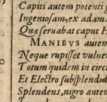 Capiti autem potenti
Ingeniosam, ex adam
Quæ seruabat caput H
MANIBVS autem
Neque rupisset vulne
Totum quidem in circu
Et Electro subsplendid
Splendens, nigro autem